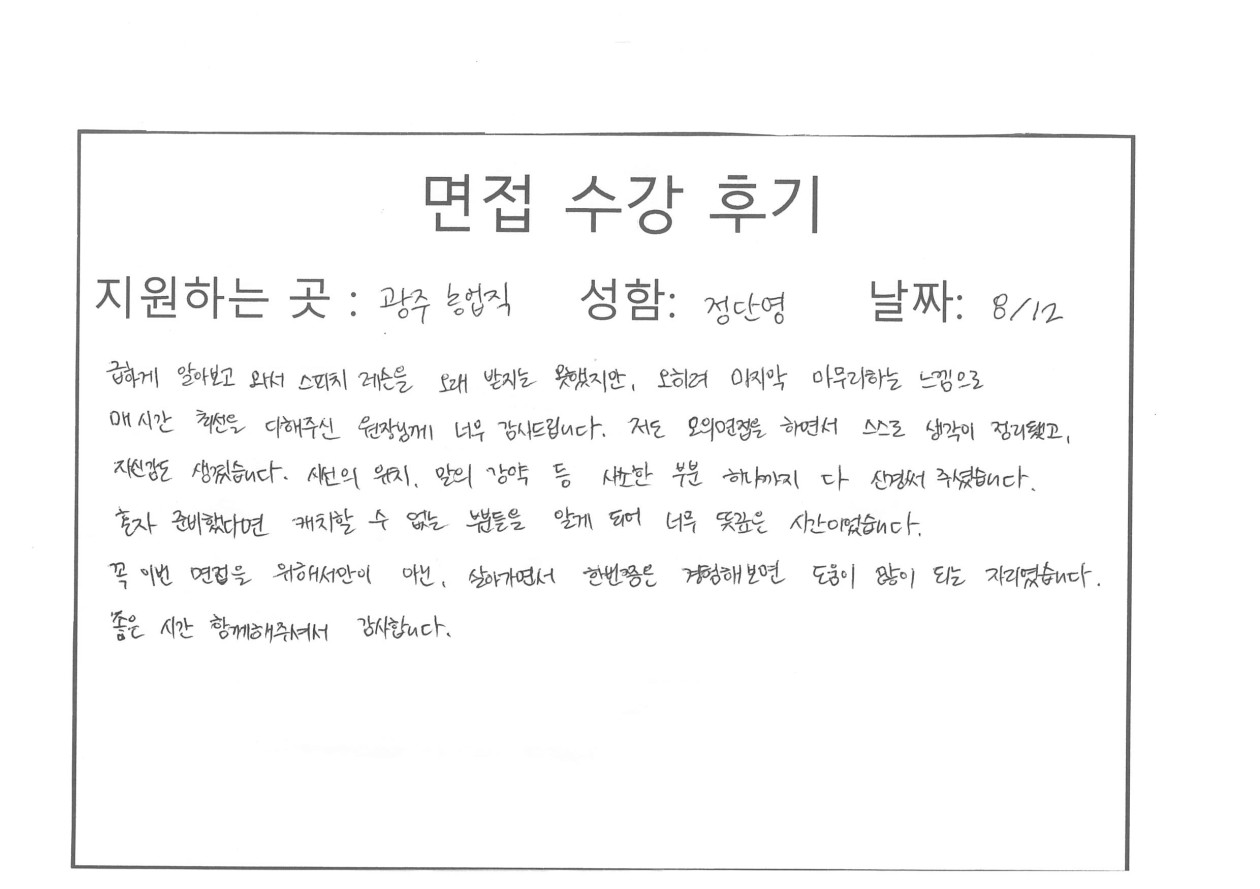 면접 수강 후기
지원하는 곳 : 광주 농업직 성함: 정단영 날짜: 8/12
급하게 알아보고 와서 스피치 레슨을 오래 받지는 못했지만, 오히려 마지막 마무리하는 느낌으로
매 시간 최선을 다해주신 원장님께 너무 감사드립니다. 저도 모의면접을 하면서 스스로 생각이 정리됐고,
자신감도 생겼습니다. 시선의 위치, 말의 강약 등 사소한 부분 하나까지 다 신경써 주셨습니다.
혼자 준비했다면 캐치할 수 없는 부분들을 알게 되어 너무 뜻깊은 시간이었습니다.
꼭 이번 면접을 위해서만이 아닌, 살아가면서 한번쯤은 경험해보면 도움이 많이 되는 자리였습니다.
좋은 시간 함께해주셔서 감사합니다.